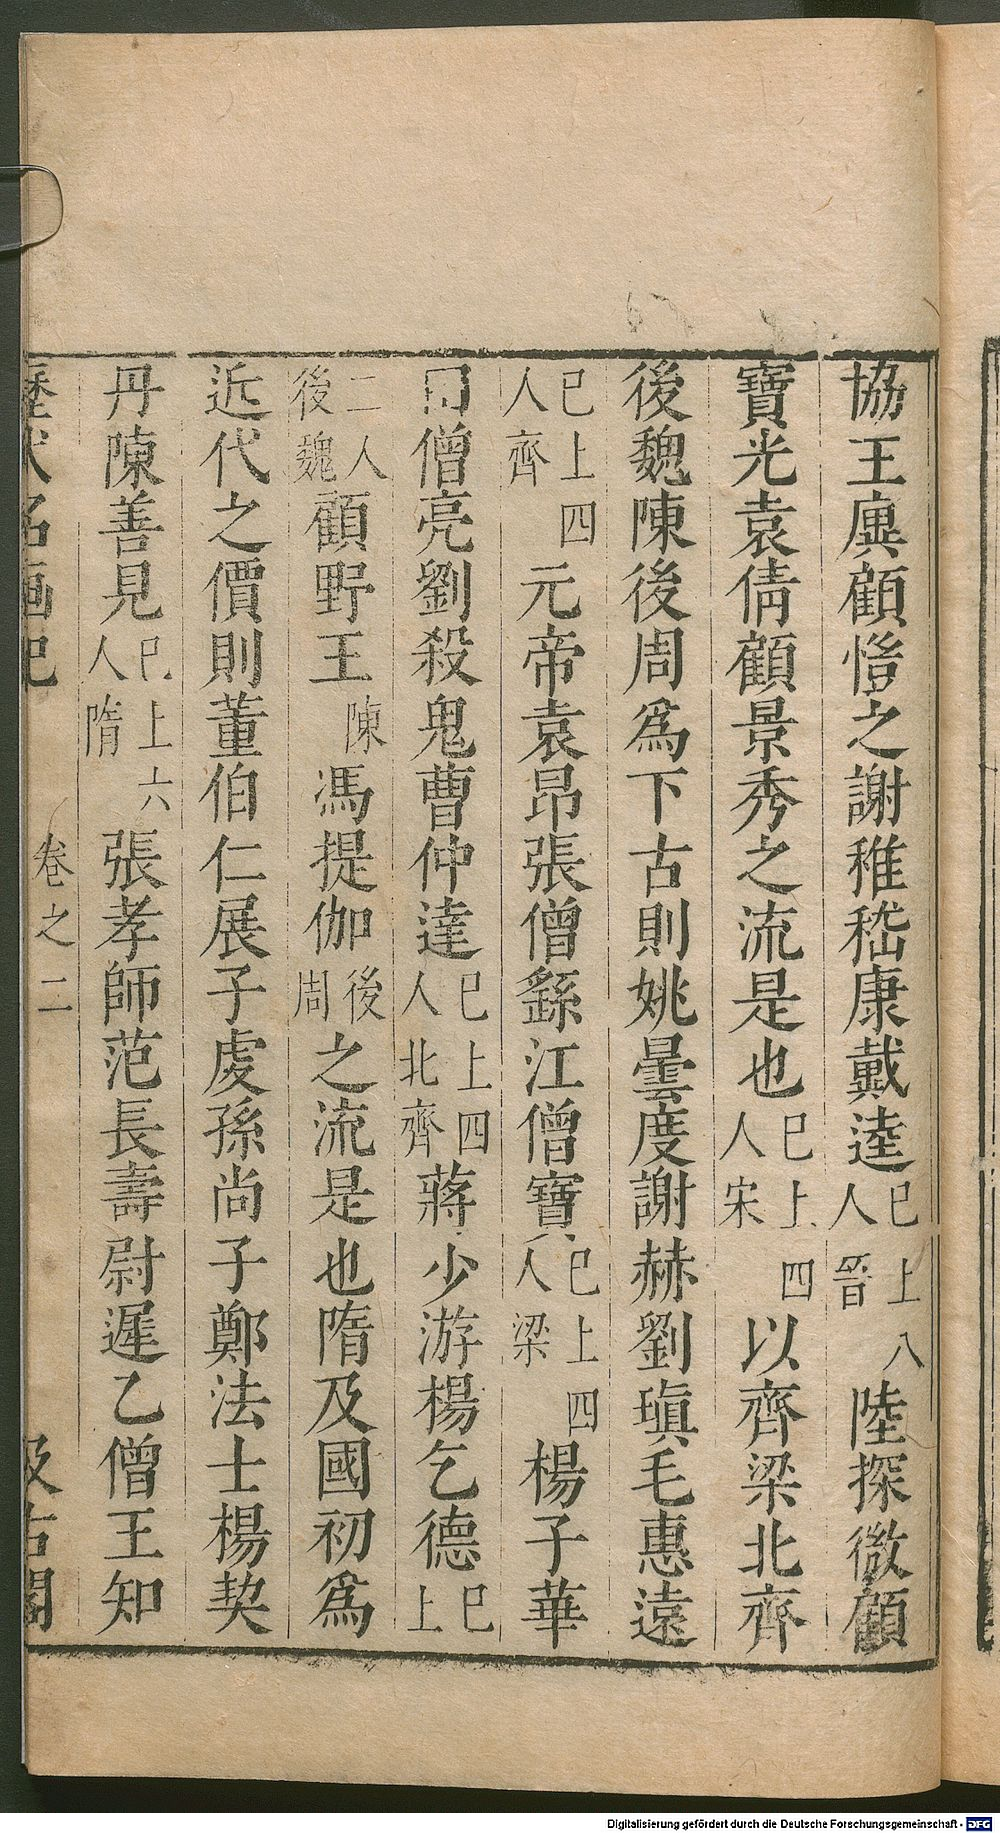 協王廙顧愷之謝稚嵇康戴逵已上八人晉陸探微顧
寶光袁倩顧景秀之流是也已上四人宋以齊梁北齊
後魏陳後周爲下古則姚曇度謝赫劉瑱毛惠遠
已上四人齊元帝袁昂張僧繇江僧寶已上四人梁楊子華
田僧亮劉殺鬼曹仲達已上四人北齊蔣少游楊乞德已上
二人後魏顧野王陳馮提伽後周之流是也隋及國初爲
近代之價則董伯仁展子虔孫尚子鄭法士楊契
丹陳善見已上六人隋張孝師范長壽尉遲乙僧王知
歷代名画記 卷之二 汲古閣
Digitalisierung gefördert durch die Deutsche Forschungsgemeinschaft - DFG